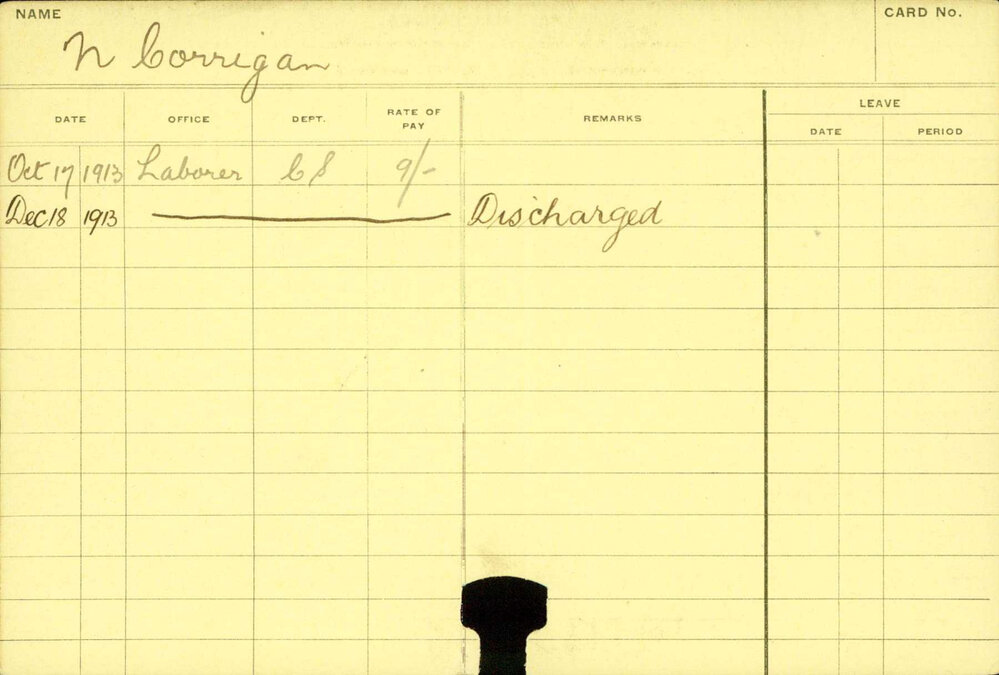 NAME
CARD No.
N Corrigan
DATE OFFICE DEPT. RATE OF PAY REMARKS LEAVE
DATE PERIOD
Oct 17 1913 Laborer C S 9/-
Dec 18 1913 Discharged